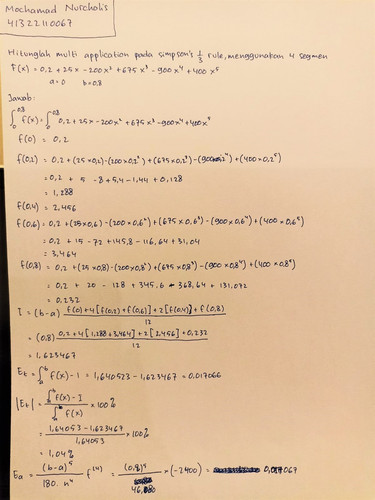 Mochamad Nurchalis
41322110067
Hitunglah multi application pada simpson's 1/3 rule, menggunakan 4 segmen
F(x) = 0,2 + 25x - 200x² + 675x³ - 900x⁴ + 400x⁵
a = 0 b = 0,8
Jawab:
∫₀^0,8 f(x) = ∫₀^0,8 0,2 + 25x - 200x² + 675x³ - 900x⁴ + 400x⁵
f(0) = 0,2
f(0,2) = 0,2 + (25×0,2) - (200×0,2²) + (675×0,2³) - (900×0,2⁴) + (400×0,2⁵)
= 0,2 + 5 - 8 + 5,4 - 1,44 + 0,128
= 1,288
f(0,4) = 2,456
f(0,6) = 0,2 + (25×0,6) - (200×0,6²) + (675×0,6³) - (900×0,6⁴) + (400×0,6⁵)
= 0,2 + 15 - 72 + 145,8 - 116,64 + 31,04
= 3,464
f(0,8) = 0,2 + (25×0,8) - (200×0,8²) + (675×0,8³) - (900×0,8⁴) + (400×0,8⁵)
= 0,2 + 20 - 128 + 345.6 - 368,64 + 131,072
= 0,232
I = (b-a) f(0) + 4[f(0,2) + f(0,6)] + 2[f(0,4)] + f(0,8) / 12
= (0,8) 0,2 + 4[1,288 + 3,464] + 2[2,456] + 0,232 / 12
= 1,623467
Et = ∫ₐᵇ f(x) - I = 1,640533 - 1,623467 = 0,017066
|Et| = ∫ₐᵇ f(x) - I / ∫ₐᵇ f(x) × 100%
= 1,64053 - 1,623467 / 1,64053 × 100%
= 1,04%
Ea = (b-a)⁵ / 180. n⁴ f⁽⁴⁾ = (0,8)⁵ / 46,080 × (-2400) = 0,017067